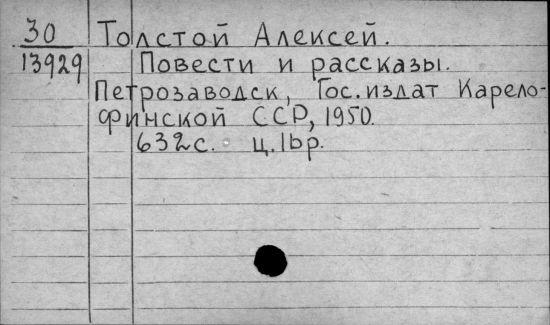 30
13929
Толстой Алексей.
Повести и рассказы.
Петрозаводск, Гос.издат Карело-
финской ССР, 1950.
632с. ц.16р.